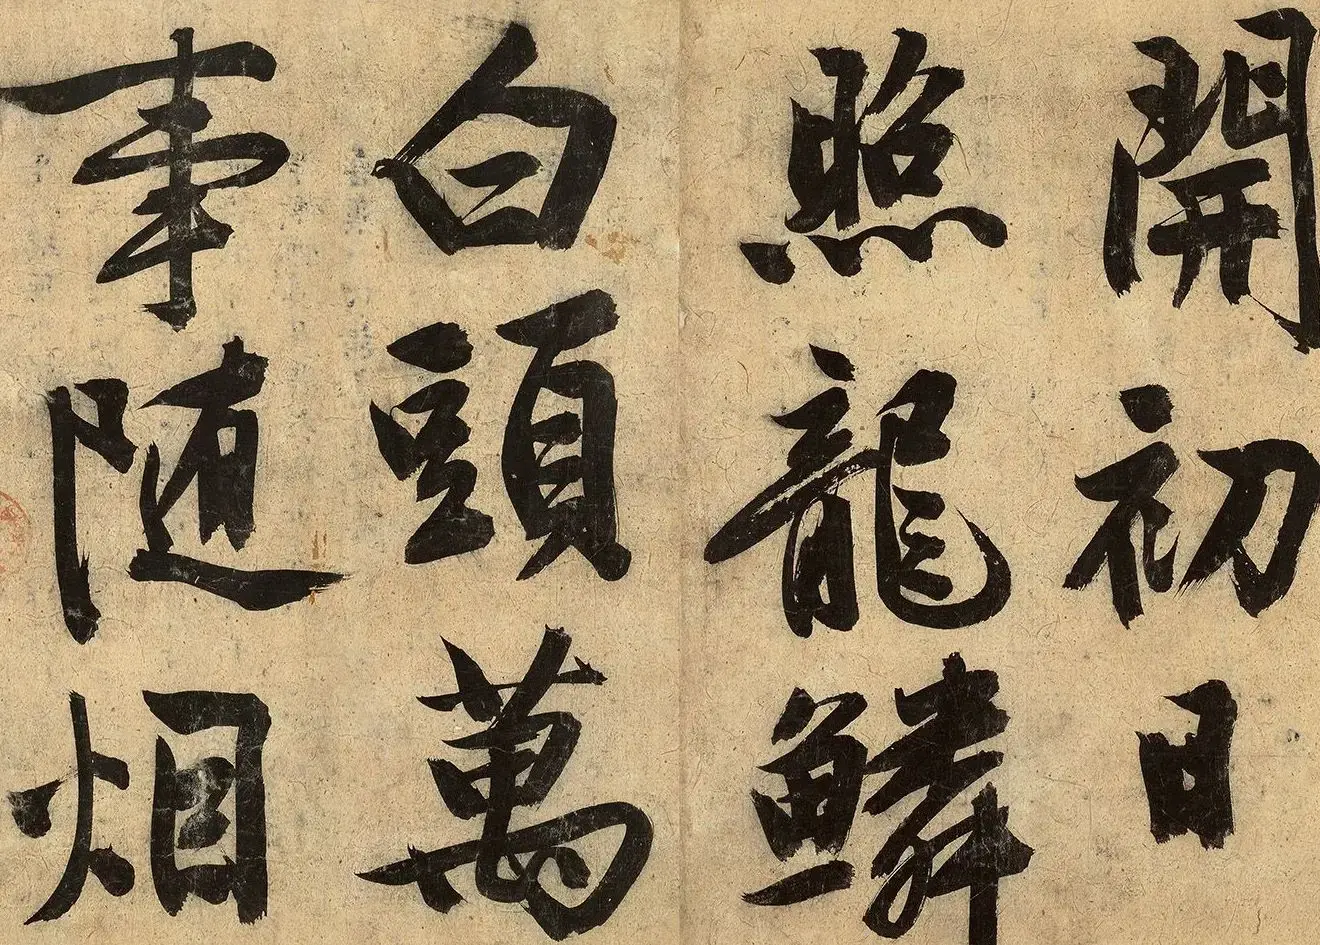 開初日
照龍鱗
白頭萬
事随烟